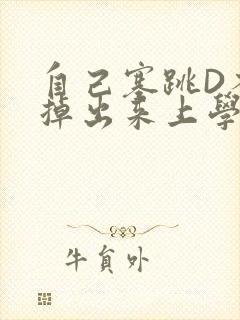 自己塞跳D不
掉出来上學
牛貟外